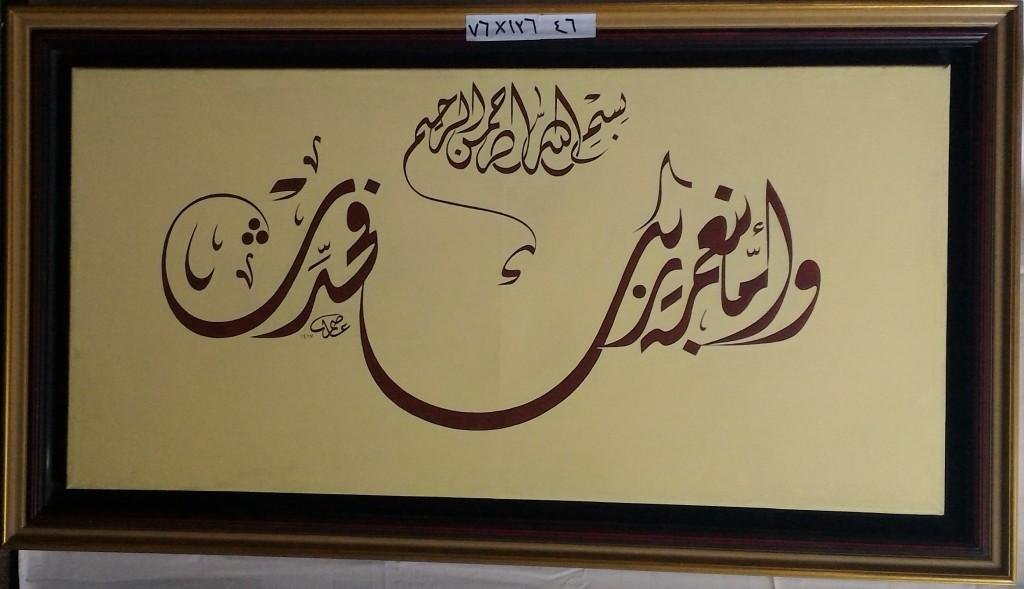 ٧٦×١٢٦ ٤٦
بسم الله الرحمن الرحيم
وأما بنعمة ربك فحدث